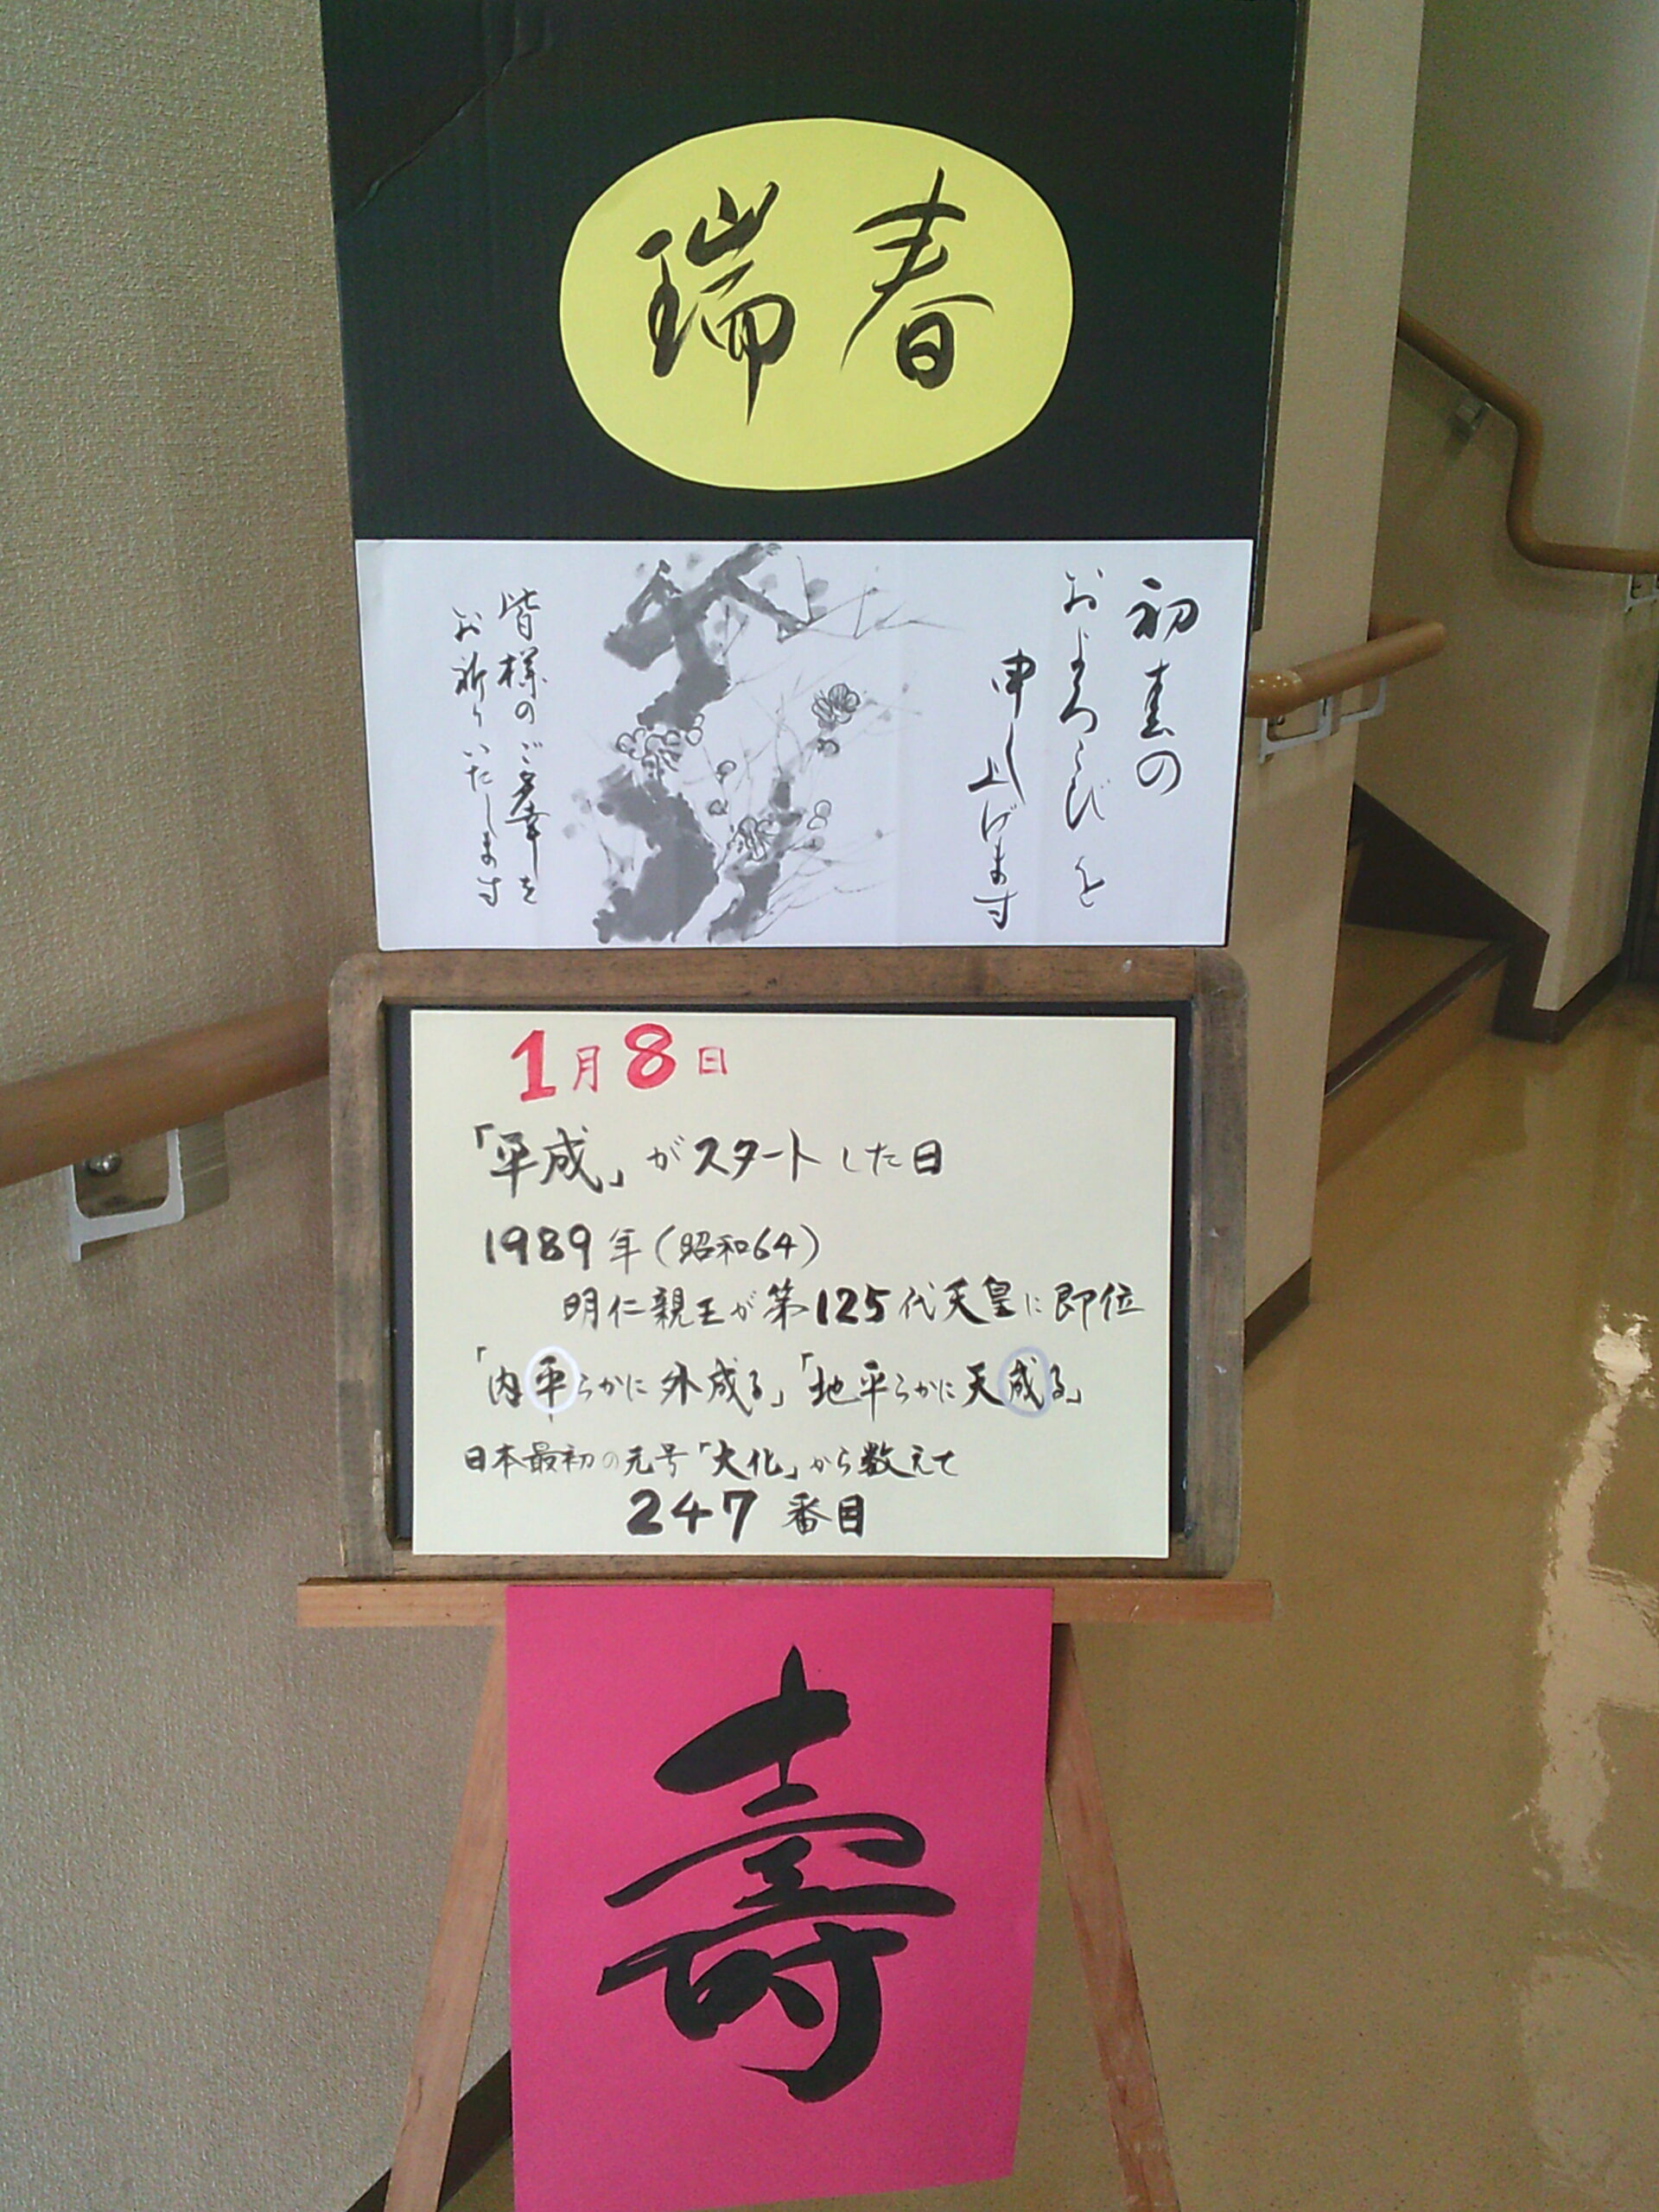 瑞春
初春の
およろこびを
申し上げます
皆様のご多幸を
お祈りいたします
1月8日
「平成」がスタートした日
1989年(昭和64)
明仁親王が第125代天皇に即位
「内平らかに外成る」「地平らかに天成る」
日本最初の元号「大化」から数えて
247番目
壽